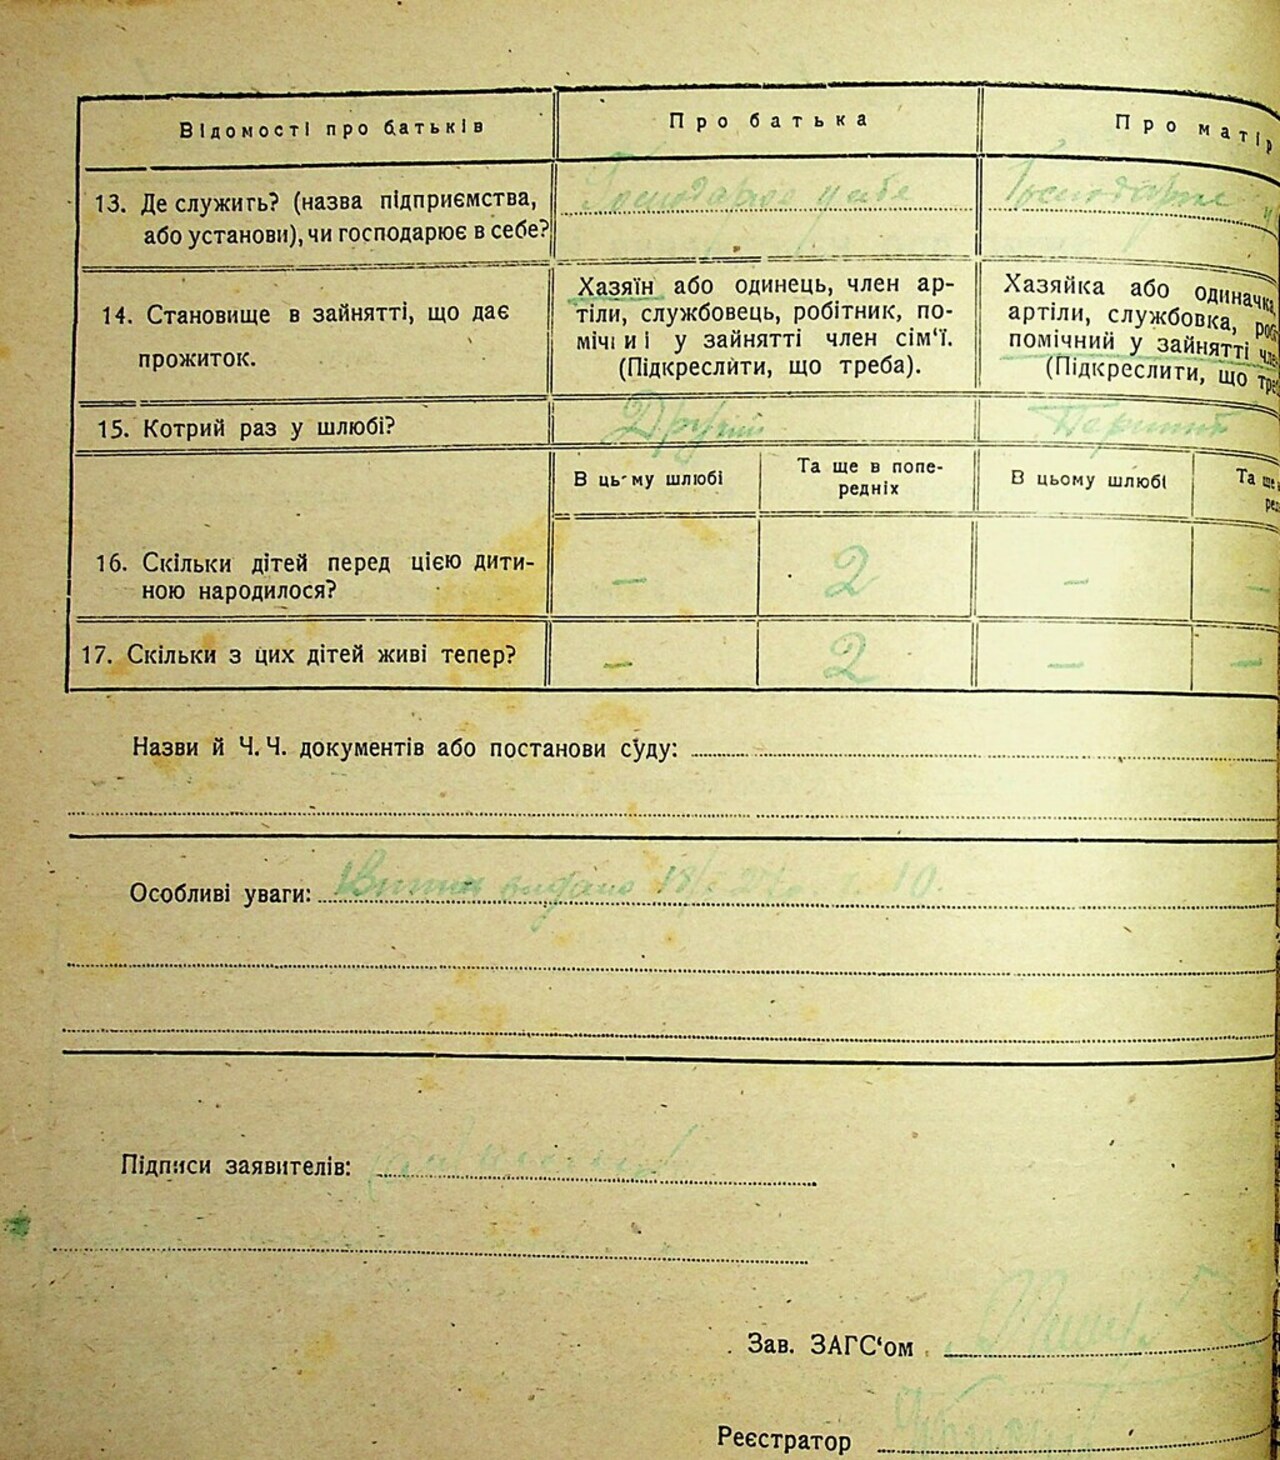 Відомості про батьків
Про батька
Про матір
13. Де служить? (назва підприємства,
або установи), чи господарює в себе?
Господарює у себе
Господарює у
14. Становище в зайнятті, що дає
прожиток.
Хазяїн або одинець, член ар-
тілі, службовець, робітник, по-
мічниі у зайнятті член сім‘ї.
(Підкреслити, що треба).
Хазяйка або одиначка,
артілі, службовка, роб
помічний у зайнятті чле
(Підкреслити, що тре
15. Котрий раз у шлюбі?
Другий
Перший
В цьму шлюбі
Та ще в попе-
редніх
В цьому шлюбі
Та ще
ред
16. Скільки дітей перед цією дити-
ною народилося?
–
2
–
–
17. Скільки з цих дітей живі тепер?
–
2
–
–
Назви й Ч. Ч. документів або постанови суду:
Особливі уваги: видано 18/ 10.
Підписи заявителів:
Зав. ЗАГС‘ом
Реєстратор